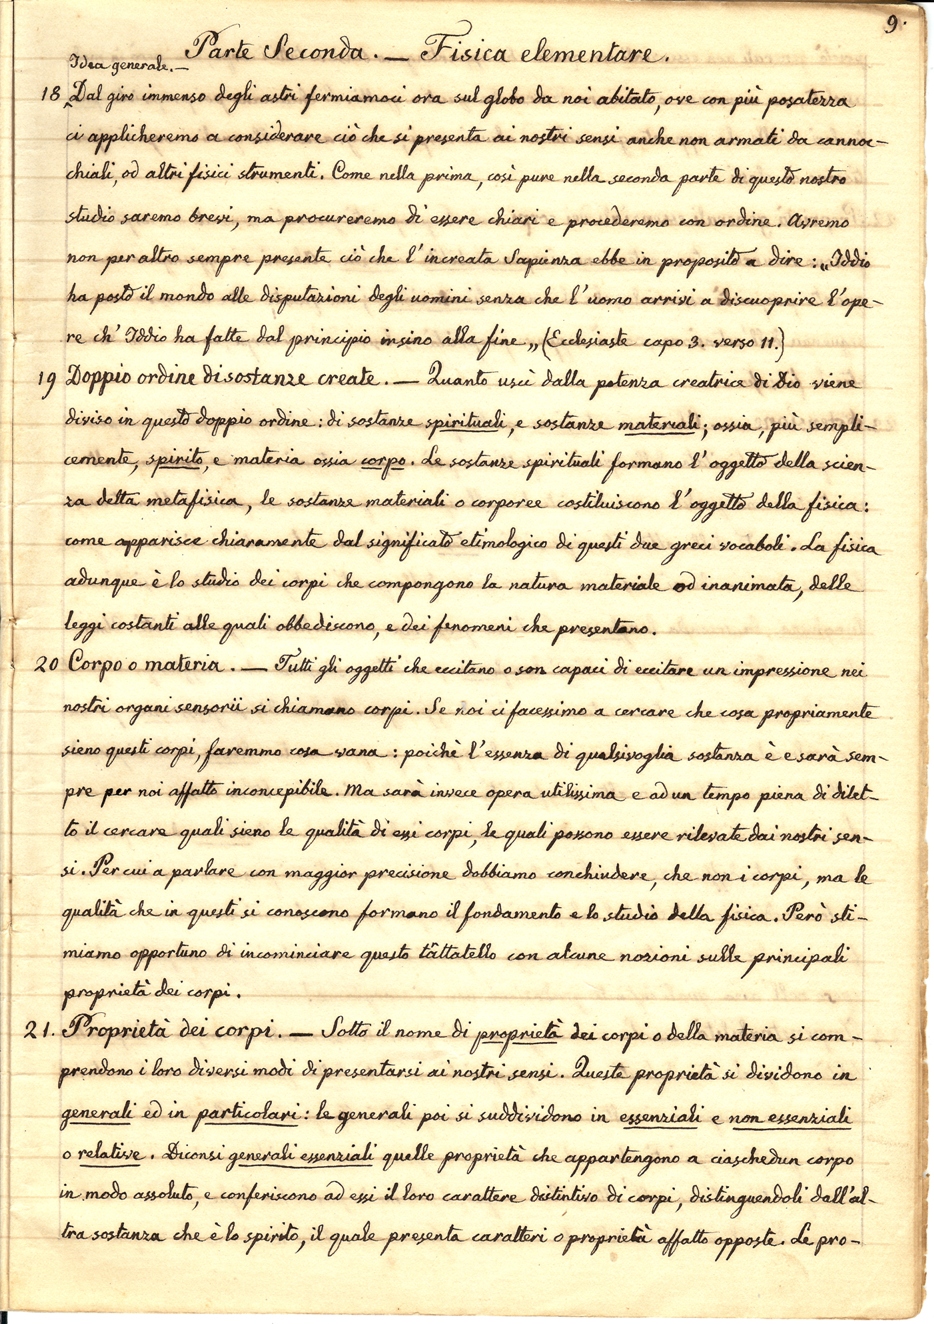 9.
Parte Seconda. — Fisica elementare.
Idea generale. —
18 Dal giro immenso degli astri fermiamoci ora sul globo da noi abitato, ove con più posatezza
ci applicheremo a considerare ciò che si presenta ai nostri sensi anche non armati da cannoc-
chiali, od altri fisici strumenti. Come nella prima, così pure nella seconda parte di questo nostro
studio saremo brevi, ma procureremo di essere chiari e procederemo con ordine. Avremo
non per altro sempre presente ciò che l'increata Sapienza ebbe in proposito a dire: „Iddio
ha posto il mondo alle disputazioni degli uomini senza che l'uomo arrivi a discuoprire l'ope-
re ch' Iddio ha fatte dal principio insino alla fine „ (Ecclesiaste capo 3. verso 11.)
19 Doppio ordine di sostanze create. — Quanto uscì dalla potenza creatrice di Dio viene
diviso in questo doppio ordine: di sostanze spirituali, e sostanze materiali; ossia, più sempli-
cemente, spirito, e materia ossia corpo. Le sostanze spirituali formano l'oggetto della scien-
za detta metafisica, le sostanze materiali o corporee costituiscono l'oggetto della fisica:
come apparisce chiaramente dal significato etimologico di questi due greci vocaboli. La fisica
adunque è lo studio dei corpi che compongono la natura materiale od inanimata, delle
leggi costanti alle quali obbediscono, e dei fenomeni che presentano.
20 Corpo o materia. — Tutti gli oggetti che eccitano o son capaci di eccitare un impressione nei
nostri organi sensorii si chiamano corpi. Se noi ci facessimo a cercare che cosa propriamente
sieno questi corpi, faremmo cosa vana: poichè l'essenza di qualsivoglia sostanza è e sarà sem-
pre per noi affatto inconcepibile. Ma sarà invece opera utilissima e ad un tempo piena di dilet-
to il cercare quali sieno le qualità di essi corpi, le quali possono essere rilevate dai nostri sen-
si. Per cui a parlare con maggior precisione dobbiamo conchiudere, che non i corpi, ma le
qualità che in questi si conoscono formano il fondamento e lo studio della fisica. Però sti-
miamo opportuno di incominciare questo tattatello con alcune nozioni sulle principali
proprietà dei corpi.
21. Proprietà dei corpi. — Sotto il nome di proprietà dei corpi o della materia si com-
prendono i loro diversi modi di presentarsi ai nostri sensi. Queste proprietà si dividono in
generali ed in particolari: le generali poi si suddividono in essenziali e non essenziali
o relative. Diconsi generali essenziali quelle proprietà che appartengono a ciaschedun corpo
in modo assoluto, e conferiscono ad essi il loro carattere distintivo di corpi, distinguendoli dall'al-
tra sostanza che è lo spirito, il quale presenta caratteri o proprietà affatto opposte. Le pro-